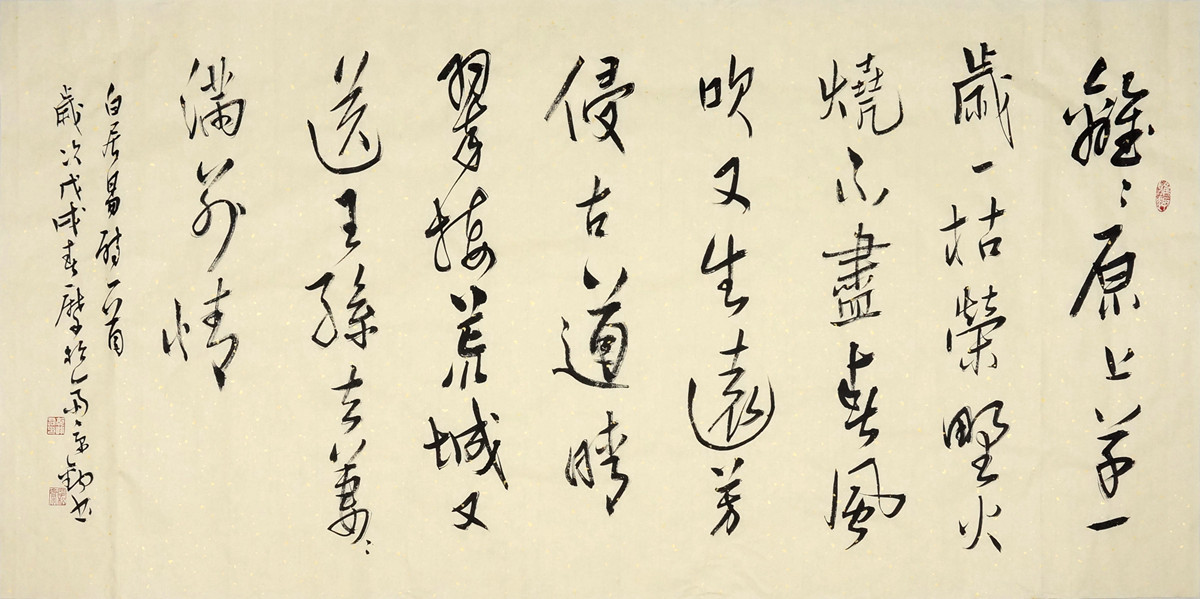 離〻原上草一
歲一枯榮野火
燒不盡春風
吹又生遠芳
侵古道晴
翠接荒城又
送王孫去萋〻
滿別情
白居易詩一首
歲次戊戌春於京書